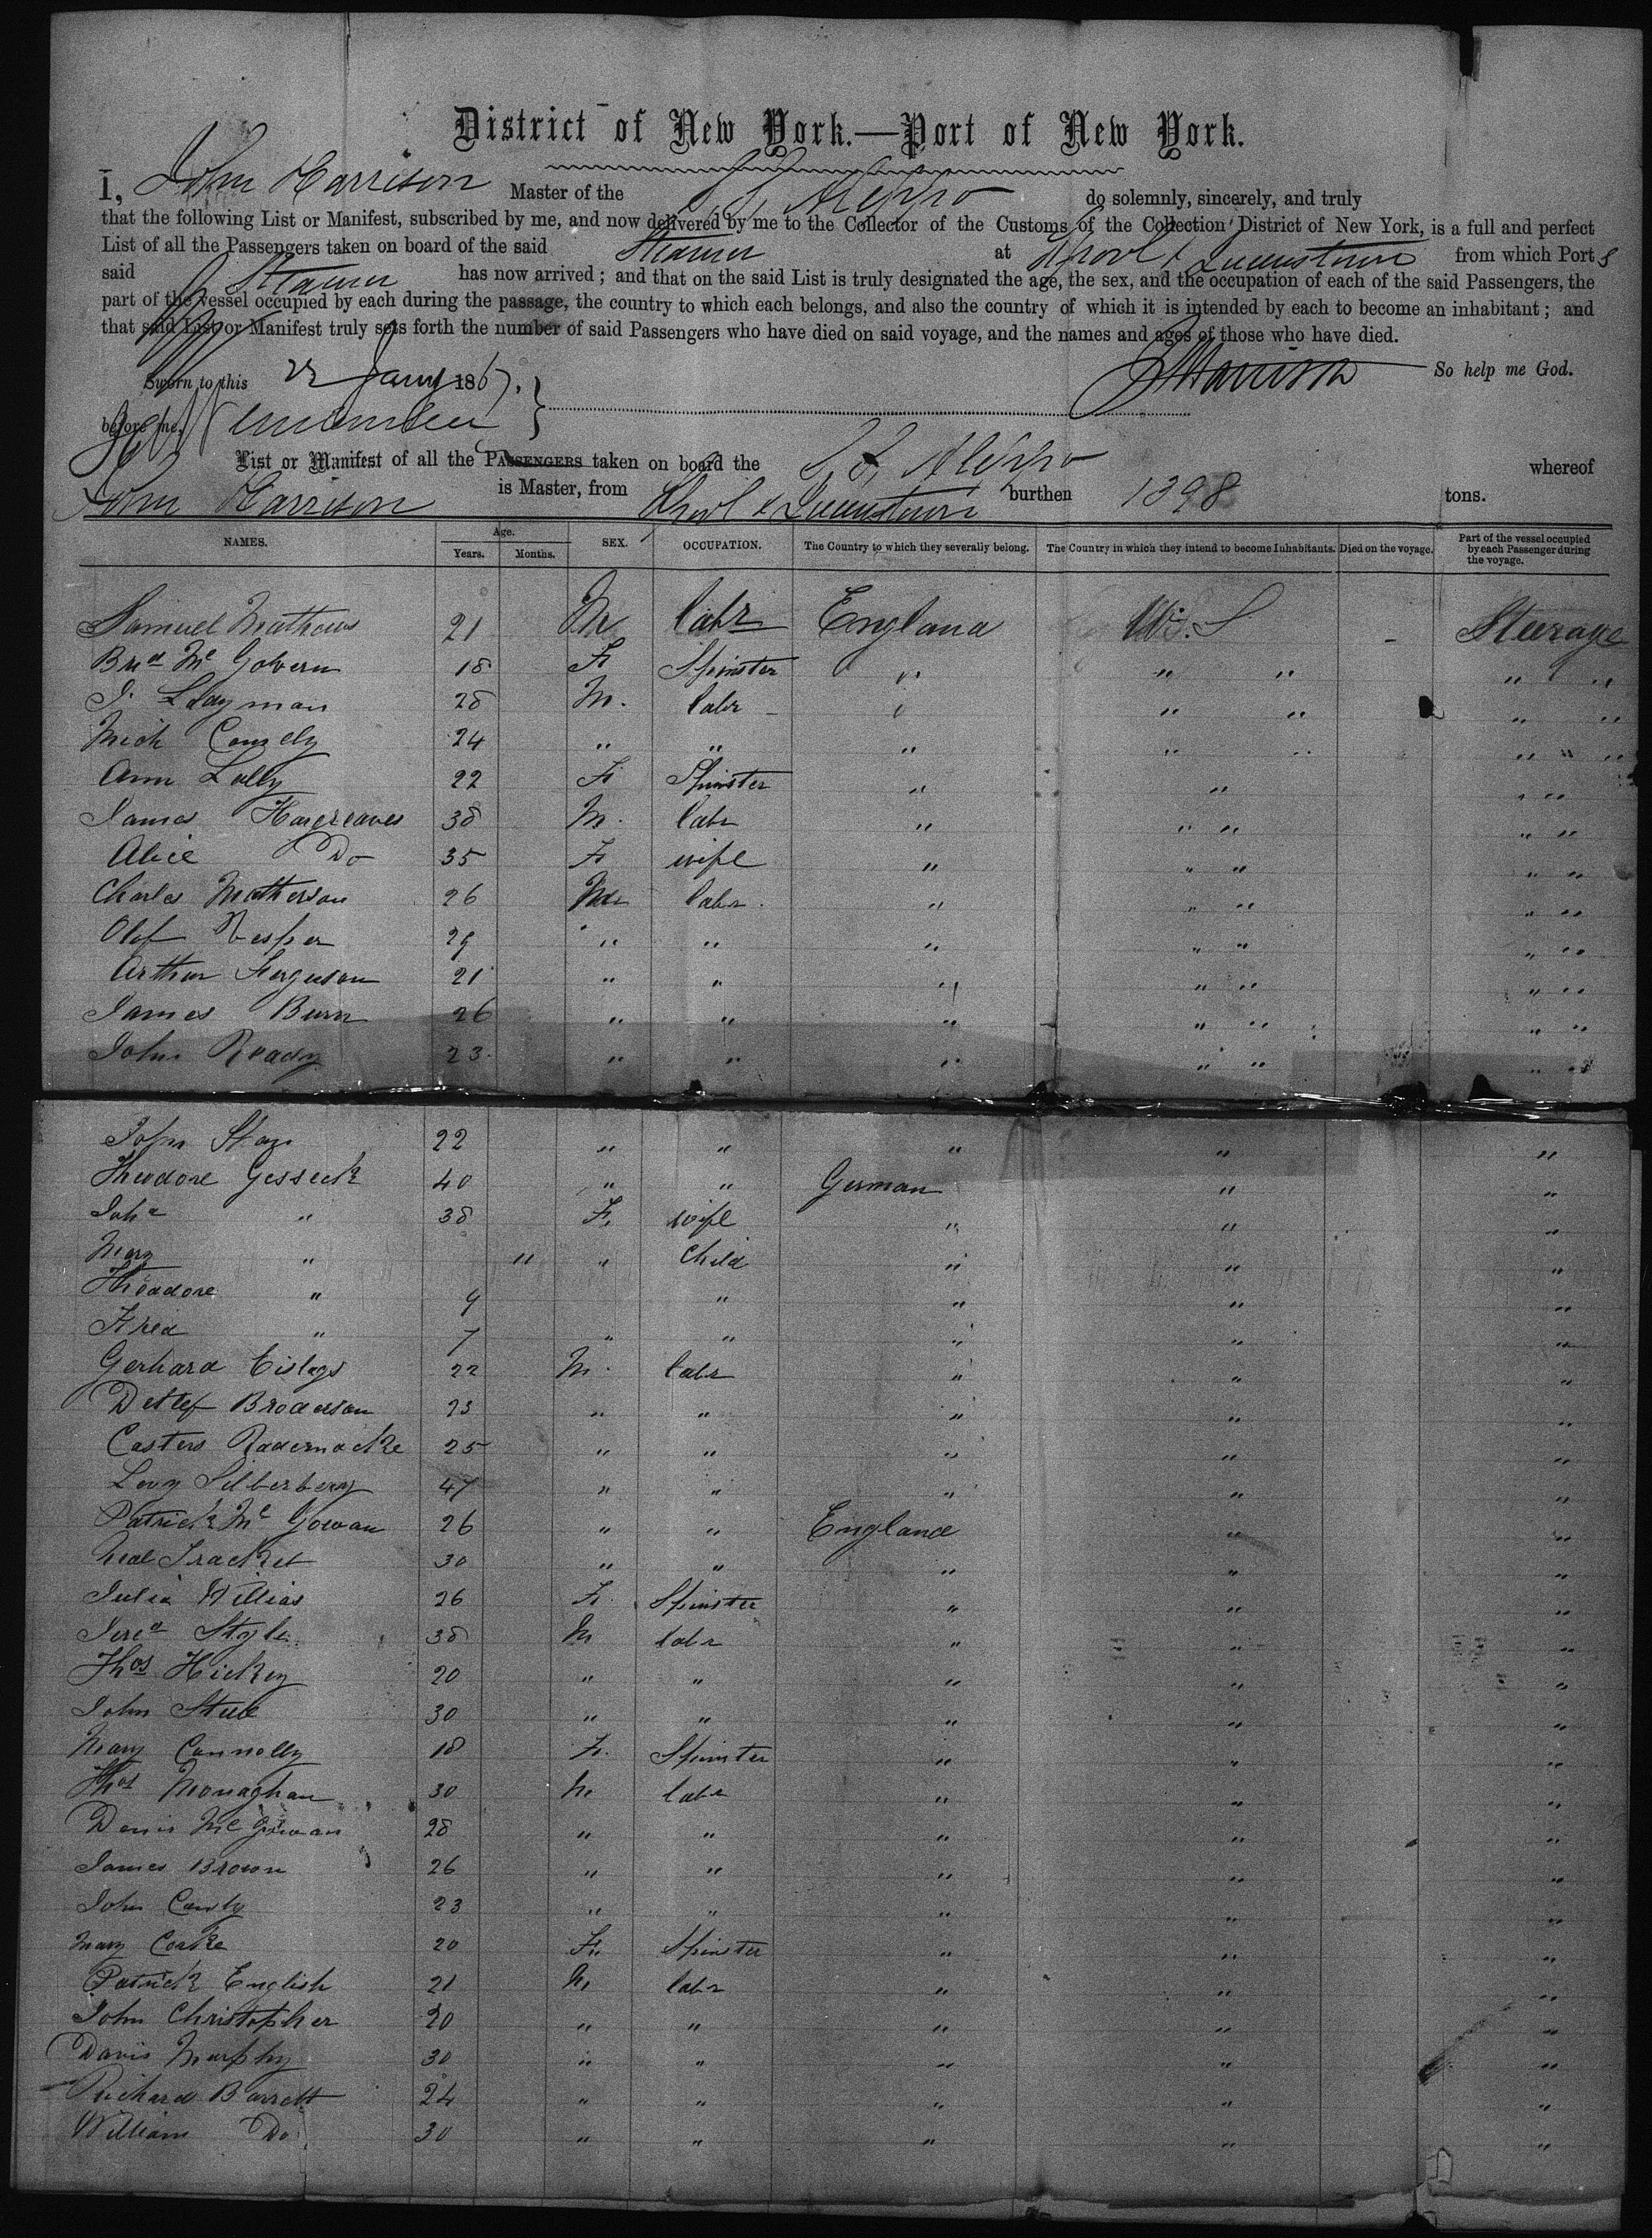 District of New York.—Port of New York.
I, John Harrison Master of the S. S. Aleppo do solemnly, sincerely, and truly
that the following List or Manifest, subscribed by me, and now delivered by me to the Collector of the Customs of the Collection District of New York, is a full and perfect
List of all the Passengers taken on board of the said Steamer at Lpool & Queenstown from which Ports
said Steamer has now arrived; and that on the said List is truly designated the age, the sex, and the occupation of each of the said Passengers, the
part of the vessel occupied by each during the passage, the country to which each belongs, and also the country of which it is intended by each to become an inhabitant; and
that said List or Manifest truly sets forth the number of said Passengers who have died on said voyage, and the names and ages of those who have died.
Sworn to this 22 Jany 1867. J Harrison So help me God.
before me,
List or Manifest of all the PASSENGERS taken on board the S. S. Aleppo whereof
John Harrison is Master, from Lpool & Queenstown burthen 1398 tons.
NAMES. Age. Years. Months. SEX. OCCUPATION. The Country to which they severally belong. The Country in which they intend to become Inhabitants. Died on the voyage. Part of the vessel occupied by each Passenger during the voyage.
Samuel Mathews 21 M labr England U. S. - Steerage
Brd Mc Govern 18 F Spinster " " " " "
28 M. labr " " " " "
Mich 24 " " " " " " "
Ann Lally 22 F Spinster " " " "
James Hargreaves 38 M. labr " " " " "
Alice Do 35 F wife " " " " "
Charles Matherson 26 M labr " " " " "
Olof 29 " " " " " " "
Arthur Ferguson 21 " " " " " " "
James Burn 26 " " " " " " "
John Ready 23 " " " " " " "
John 22 " " " " "
Theodore Gesseck 40 " " German " "
Joha " 38 F. wife " " "
Mary " 11 " Child " " "
Theodore " 9 " " " "
Fred " 7 " " " " "
Gerhard 22 M. labr " " "
Detlef Broderson 23 " " " " "
Casters Radernacke 25 " " " " "
Levy Silberberg 47 " " " " "
Patrick Mc Gowan 26 " " England " "
Neal 30 " " " " "
Julia Willias 26 F. Spinster " " "
Jerea Style 38 M labr " " "
Thos Hickey 20 " " " " "
John Steele 30 " " " " "
Mary Connolly 18 F. Spinster " " "
Thos Monaghan 30 M labr " " "
Denis Mc Gowan 28 " " " " "
James Brown 26 " " " " "
John 23 " " " " "
Mary 20 F. Spinster " " "
Patrick English 21 M labr " " "
John Christopher 20 " " " " "
Davis Murphy 30 " " " " "
Richard Barrett 24 " " " " "
William Do 30 " " " " "